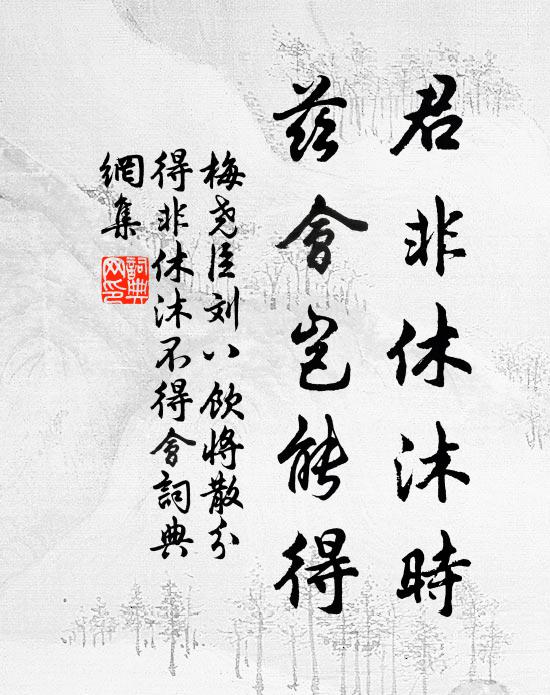 君非休沐時
茲會岂能得
梅尧臣刘八飲将散分
得非休沐不得會詞典
網集
詞典網印